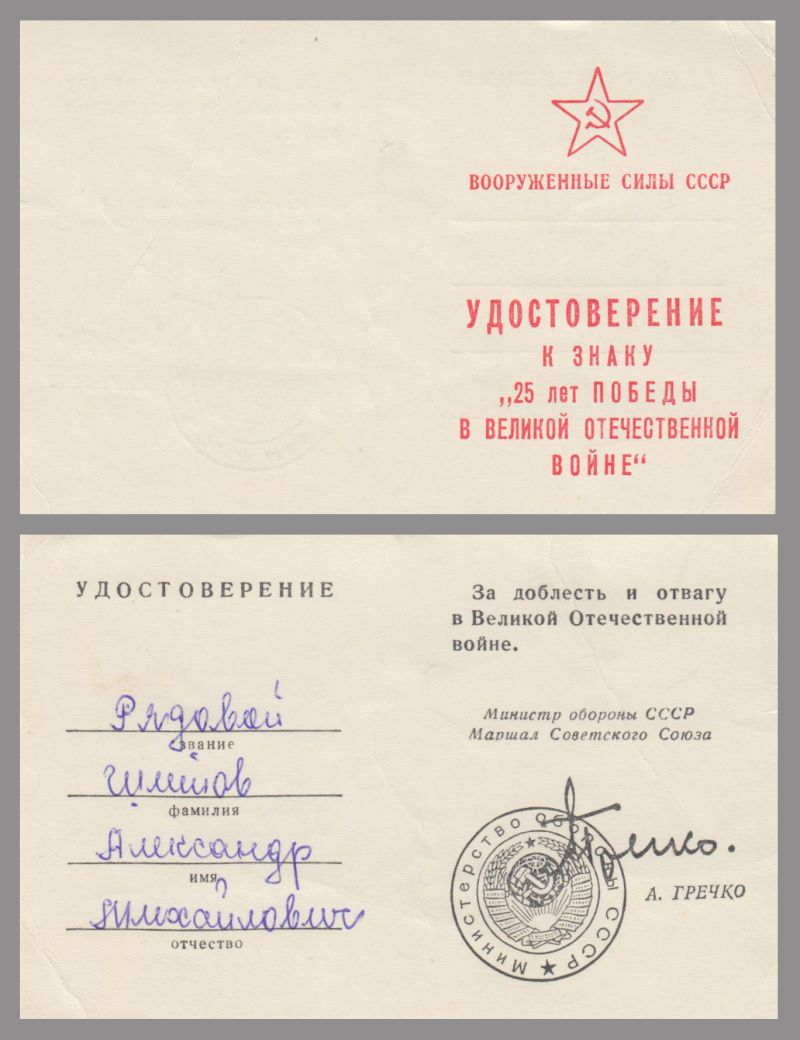 ВООРУЖЕННЫЕ СИЛЫ СССР
УДОСТОВЕРЕНИЕ
К ЗНАКУ
„25 лет ПОБЕДЫ
В ВЕЛИКОЙ ОТЕЧЕСТВЕННОЙ
ВОЙНЕ“
УДОСТОВЕРЕНИЕ
Рядовой
звание
фамилия
Александр
имя
Михайлович
отчество
За доблесть и отвагу
в Великой Отечественной
войне.
Министр обороны СССР
Маршал Советского Союза
Гречко.
Министерство Обороны СССР
А. ГРЕЧКО